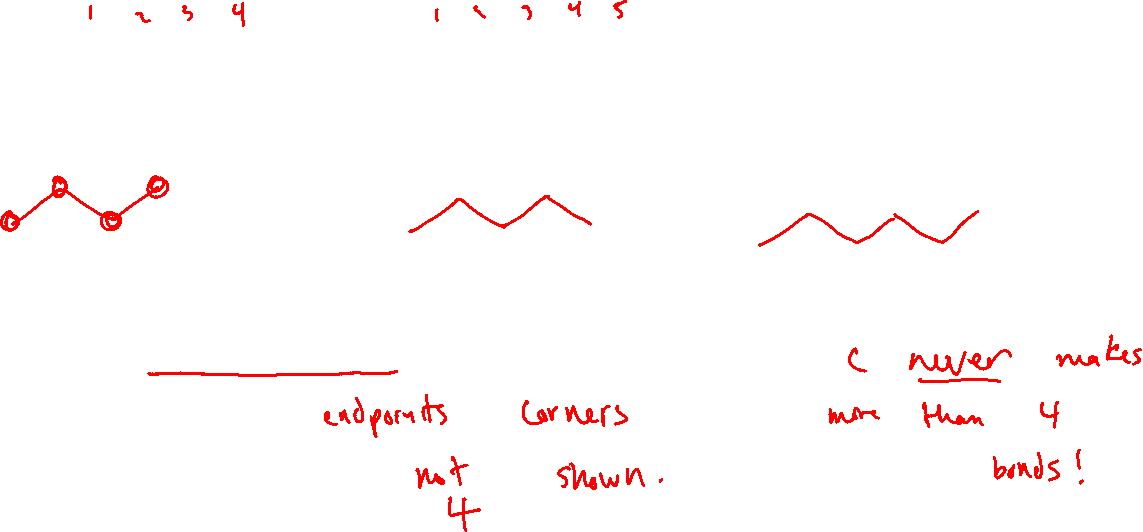 1 2 3 4
1 2 3 4 5
endpoints corners
not shown.
4
C never makes
more than 4
bonds!